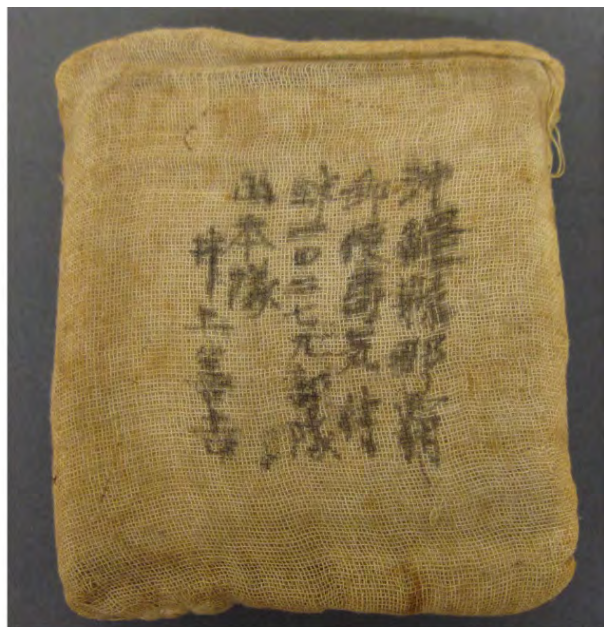 沖縄縣那覇
郵便局気付
球一〇二七九部隊
山本隊
井上